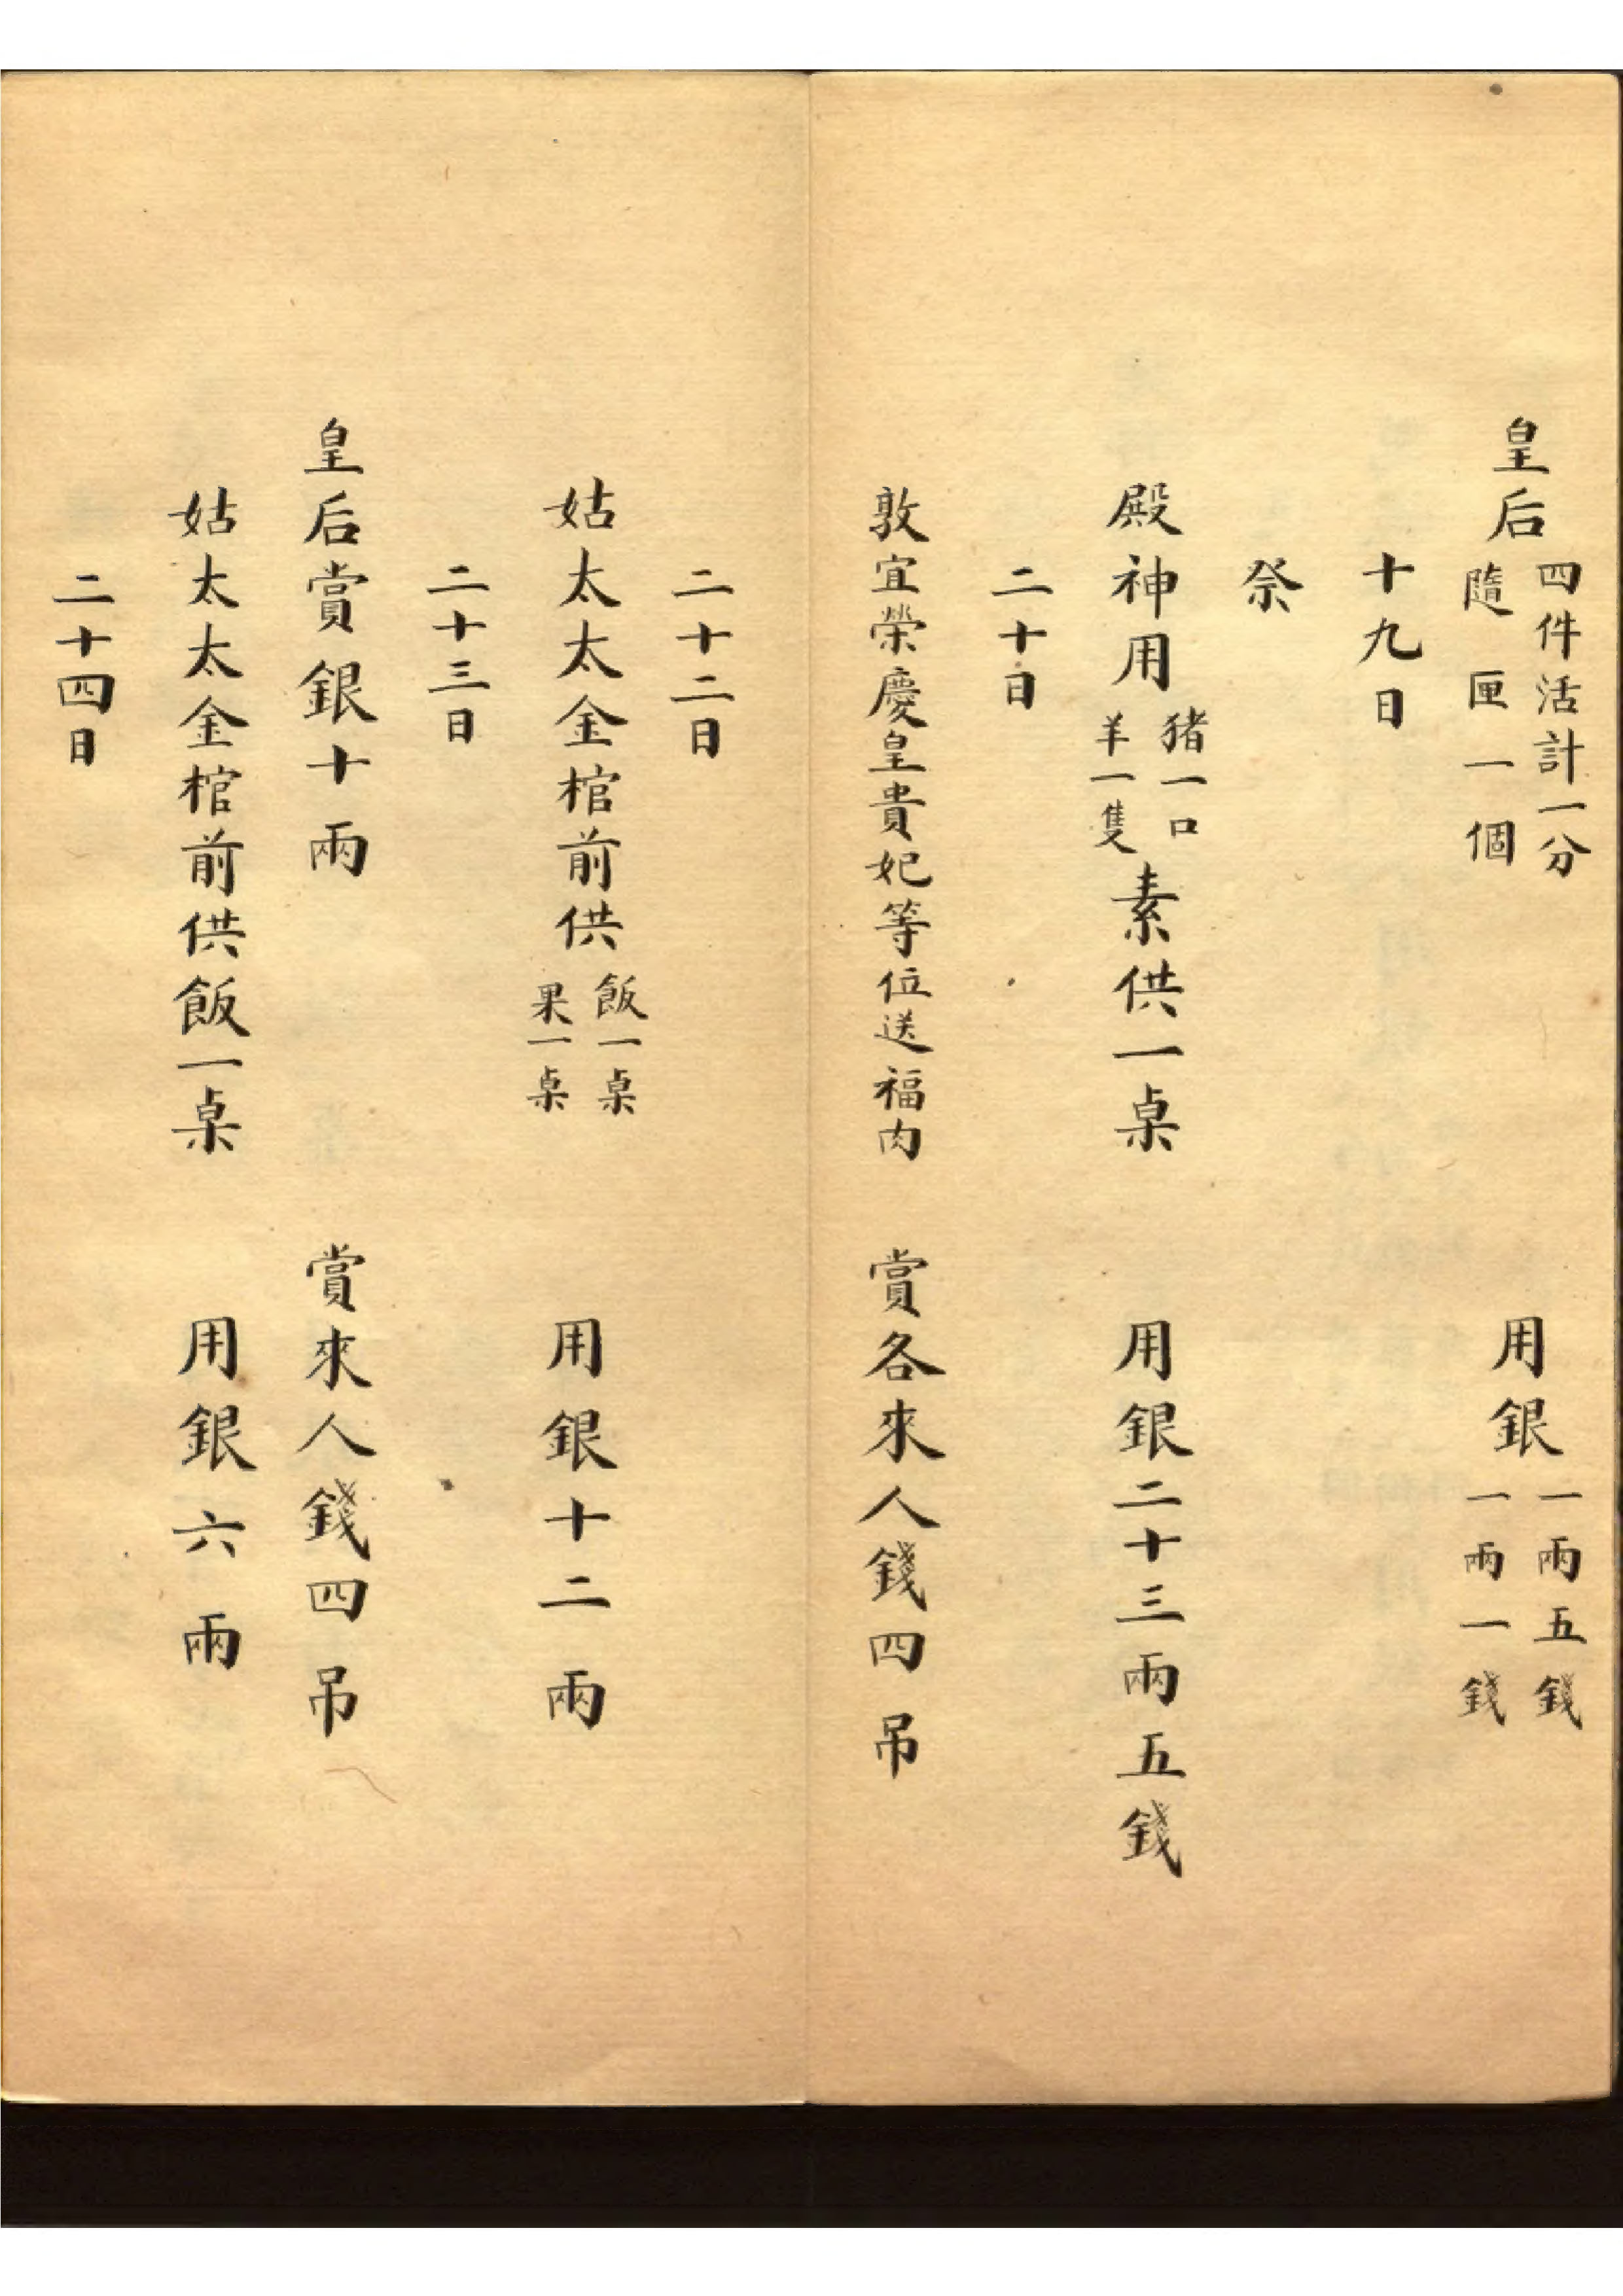 皇后四件活計一分隨匣一個 用銀一兩五錢一兩一錢
十九日
祭
殿神用猪一口羊一隻素供一桌 用銀二十三兩五錢
二十日
敦宜榮慶皇貴妃等位送福肉 賞各來人錢四吊
二十二日
姑太太金棺前供飯一桌果一桌 用銀十二兩
二十三日
皇后賞銀十兩 賞來人錢四吊
姑太太金棺前供飯一桌 用銀六兩
二十四日